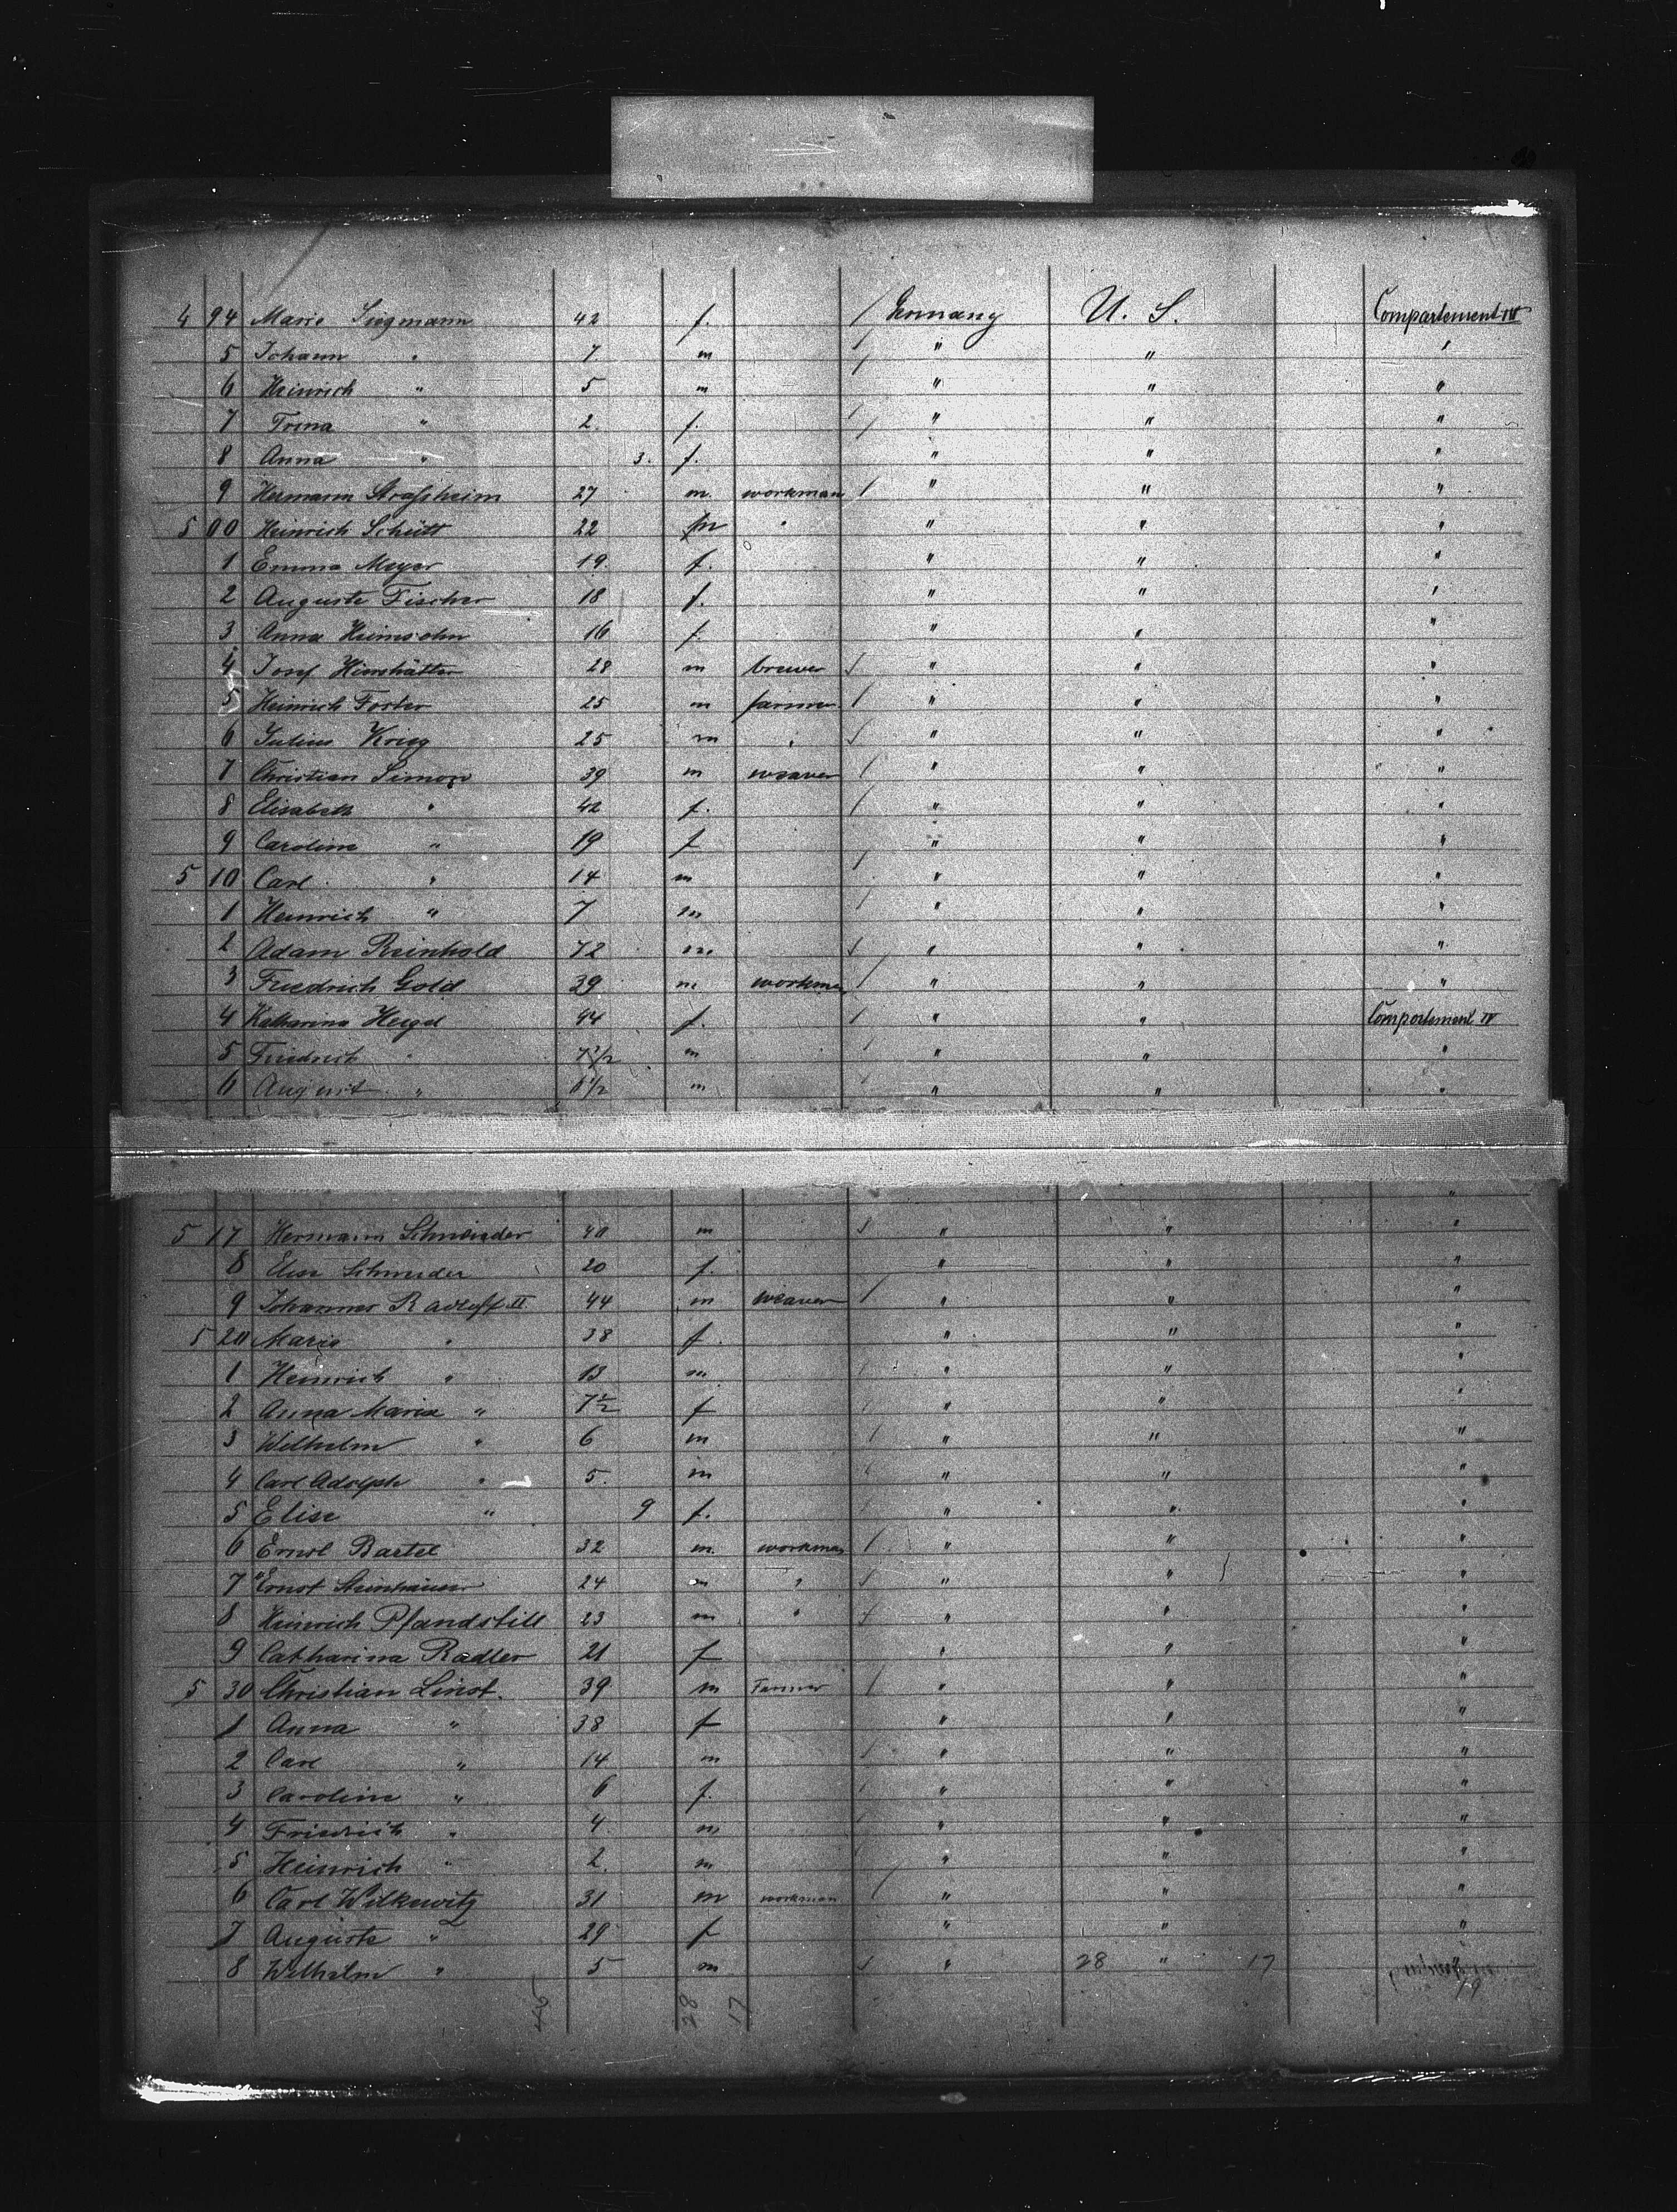 4 94 Marie Siegmann 42 f. / Germany U. S. Compartement IV
5 Johann " 7 m / " " "
6 Heinrich " 5 m " " "
7 Trina " 2 f. / " " "
8 Anna " 3. f. " " "
9 Hermann Straßheim 27 m. workman / " " "
5 00 Heinrich Schütt 22 m " " " "
1 Emma Meyer 19. f. " " "
2 Auguste Fischer 18 f. " " "
3 Anna Heimsohn 16 f. " " "
4 Josef 28 m brewer / " " "
5 Heinrich Forster 25 m farmer / " " "
6 Julius Krieg 25 m " / " " "
7 Christian Simon 39 m weaver / " " "
8 Elisabeth " 42 f. / " " "
9 Carolina " 19 f " " "
5 10 Carl " 14 m / " " "
1 Heinrich " 7 m / " " "
2 Adam Reinhold 72 m. / " " "
3 Friedrich Gold 39 m workman / " " "
4 Katharina Heigel 44 f. / " " Compartement IV
5 Friedrich " 7 1/2 m / " " "
6 August " 6 1/2 m / " " "
5 17 Hermann Schneider 40 m / " " "
8 Elise Schneider 20 f. " " "
9 Johannes Radloff II 44 m weaver / " " "
5 20 Maria " 38 f. " " "
1 Heinrich " 13 m. / " " "
2 Anna Maria " 7 1/2 f / " " "
3 Wilhelm " 6 m / " " "
4 Carl Adolph " 5. m / " " "
5 Elise " 9 f. / " " "
6 Ernst Bartel 32 m. workman / " " "
7 Ernst Steinhäuser 24 m " / " " "
8 Heinrich Pfandstill 23 m " / " " "
9 Catharina Radler 21 f " " "
5 30 Christian Linst. 39 m Farmer / " " "
1 Anna " 38 f " " "
2 Carl " 14 m / " " "
3 Carolina " 6 f. / " " "
4 Friedrich " 4. m / " " "
5 Heinrich " 2. m / " " "
6 Carl Wilkewitz 31 m workman / " " "
7 Auguste " 29 f " " "
8 Wilhelm " 5 m / " 28 " 17
28 17